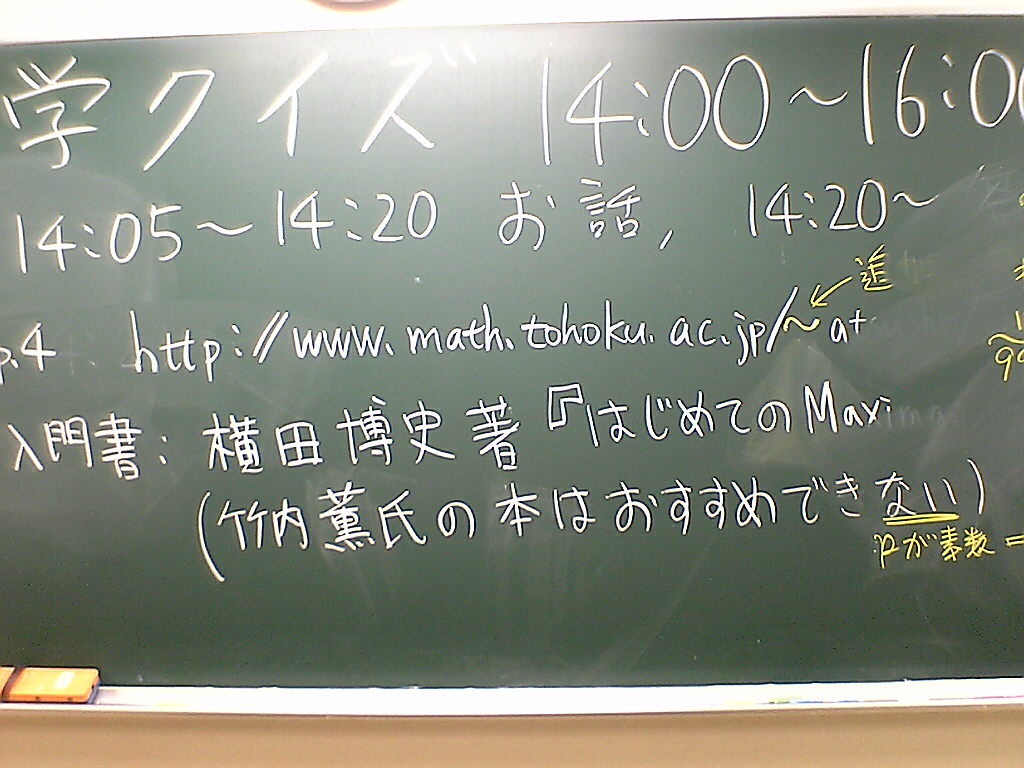 学クイズ 14:00~16:00
14:05~14:20 お話, 14:20~
追
p.4 http://www.math.tohoku.ac.jp/~at
入門書: 横田博史著『はじめてのMaxima
(竹内薫氏の本はおすすめできない)
pが素数 =